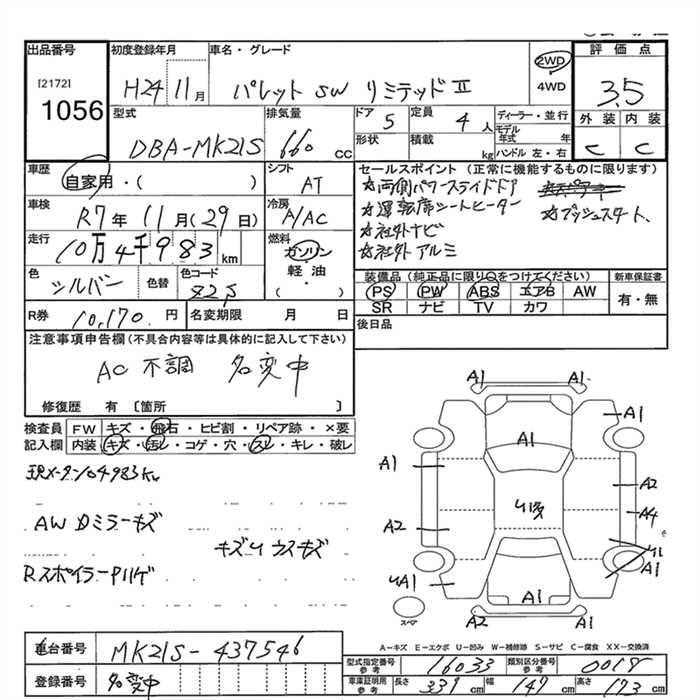 出品番号 初度登録年月 車名・グレード 2WD 評価点
[2172] H24 11月 パレット SW リミテッドⅡ 4WD 3.5
1056 型式 排気量 ドア 5 定員 4人 ディーラー・並行 外装 内装
DBA-MK21S 660 cc 形状 積載 kg モデル年式 年 ハンドル 左・右 C C
車歴 自家用・( ) シフト AT セールスポイント(正常に機能するものに限ります)
☆両側パワースライドドア
車検 R7年11月(29日) 冷房 A/AC ☆運転席シートヒーター ☆プッシュスタート、
走行 10万4千983km 燃料 ガソリン ☆社外ナビ
軽油 ☆社外アルミ
色 シルバー 色替 色コード Z2S ( ) 装備品(純正品に限り○をつけてください) 新車保証書
PS PW ABS エアB AW 有・無
R券 10,170円 名変期限 月 日 SR ナビ TV カワ
注意事項申告欄(不具合内容等は具体的に記入して下さい) 後日品
AC 不調 名変中
修復歴 有〔箇所 〕
検査員 FW キズ・飛石・ヒビ割・リペア跡・×要
記入欄 内装 キズ・汚レ・コゲ・穴・スレ・キレ・破レ
現メーター104983km
AW Dミラーキズ
キズUウスキズ
RスポイラーPハゲ
A1 A1
A1 A1
A1 A2
U1 A4
A2 U1
UA1 A1 A1
A1 A2
スペア
A-キズ E-エクボ U-凹み W-補修跡 S-サビ C-腐食 XX-交換済
車台番号 MK21S-437546 型式指定番号 参考 16033 類別区分番号 参考
登録番号 名変中 車庫証明用 参考 長さ 339cm 幅 147cm 高さ 173cm